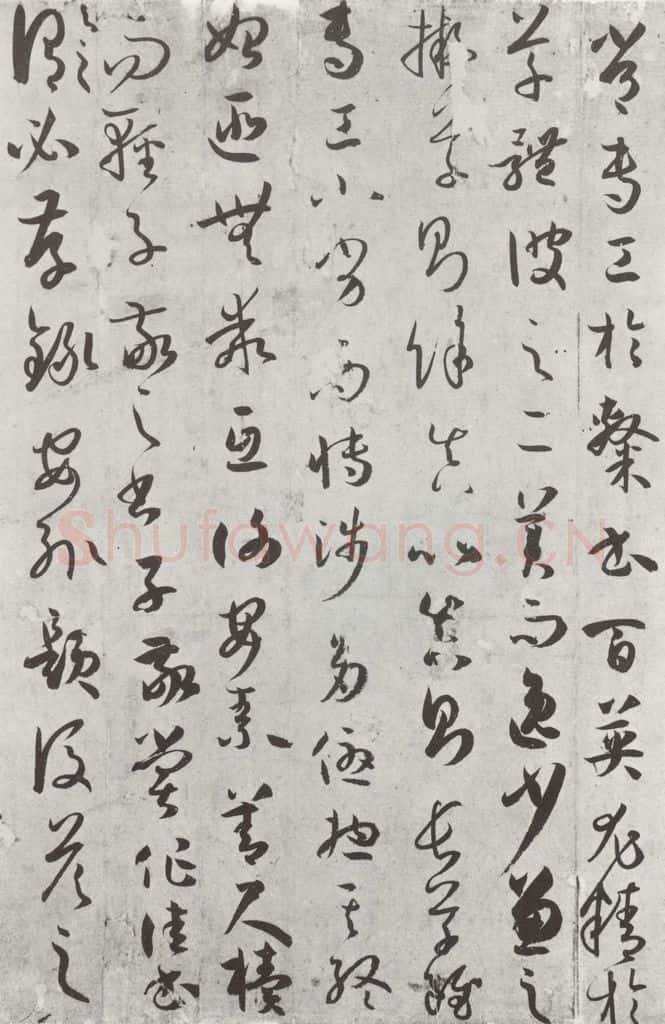 常專工於隸書百英尤精於
草體彼之二美而逸少兼之
擬草則餘真比真則長草雖
專工小劣而博涉多優揔其終
始匪無乖互謝安素善尺櫝
而輕子敬之書子敬嘗作佳書
與之謂必存錄安輒題後答之
Shufawang.CN